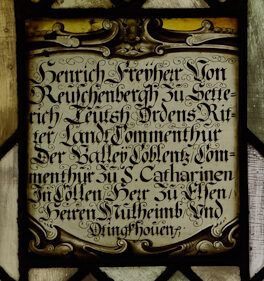 Henrich Freÿherr Von
Reuschenbergh Zu Sette-
rich Teutsh Ordens Rit-
ter Landt Commenthur
Der Balleÿ Coblentz Com-
menthur Zu S. Catharinen
In Cöllen Herr Zu Elsen/
Herren Mülheimb/ Und
Dringkhouen